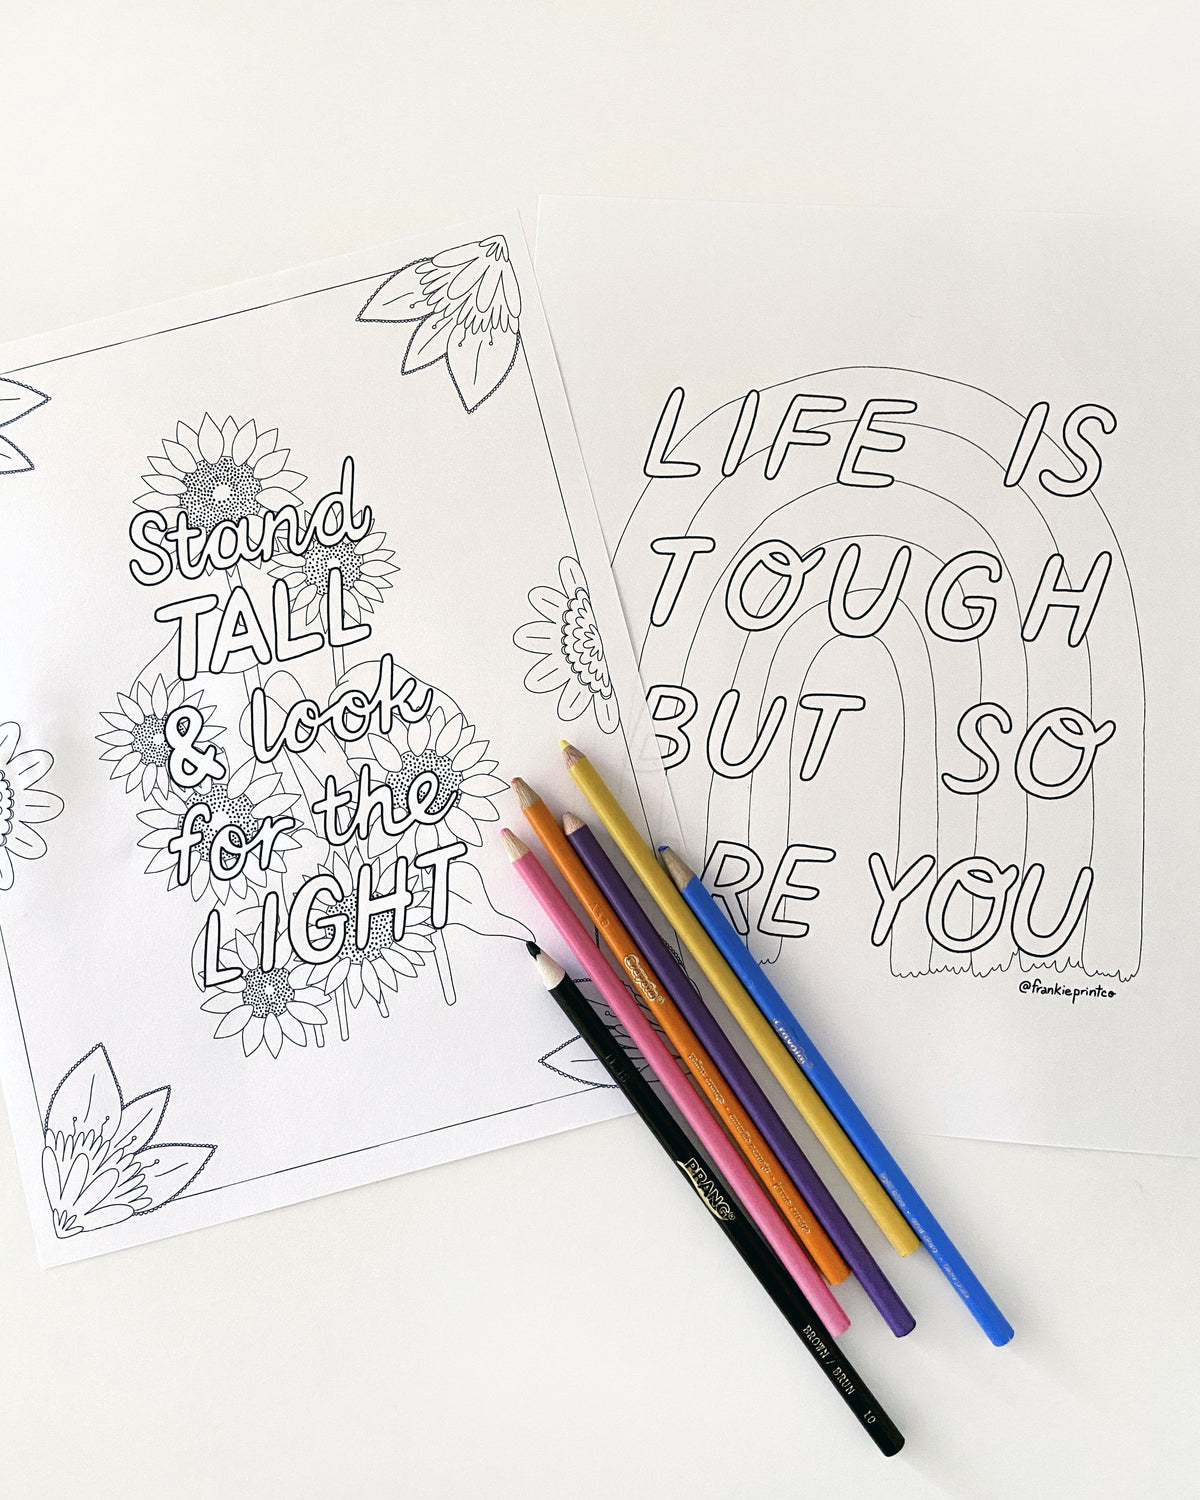 Stand
TALL
& look
for the
LIGHT
LIFE IS
TOUGH
BUT SO
RE YOU
@frankieprintco
Crayola
Crayola
PRANG
BROWN / BRUN 10